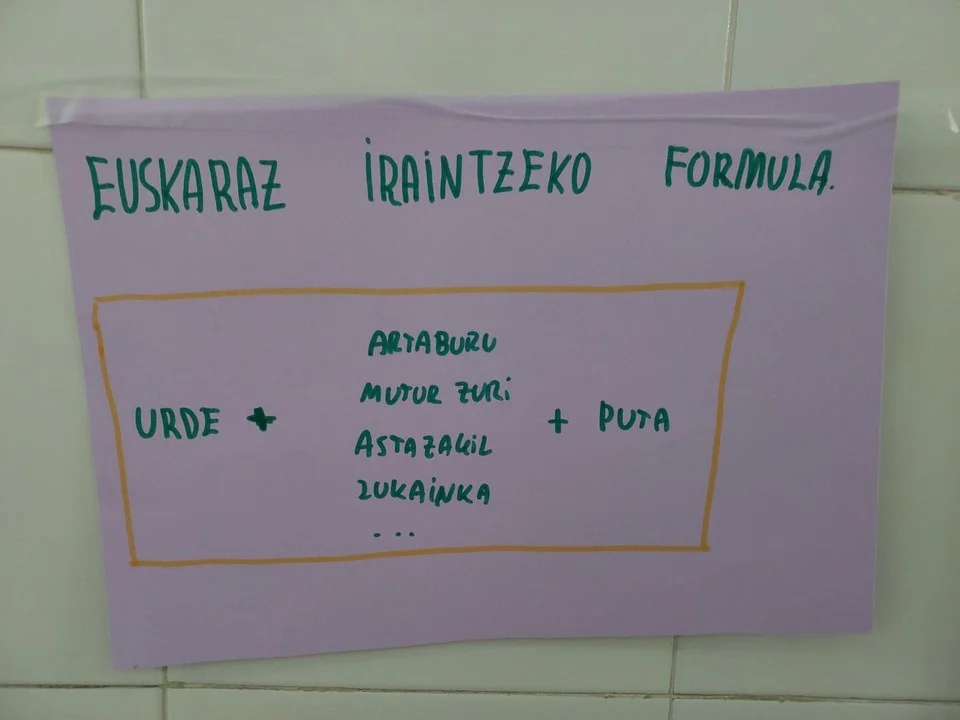 EUSKARAZ IRAINTZEKO FORMULA.
ARTABURU
MUTUR ZURI
URDE + ASTAZAKIL + PUTA
ZUKAINKA
...